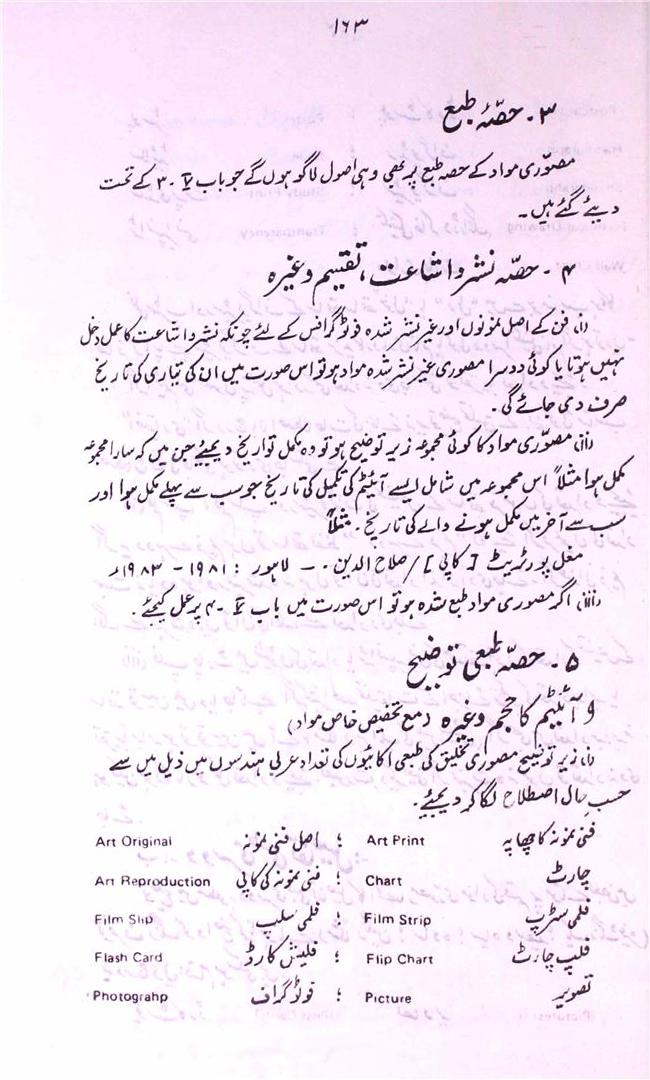 ۱۶۳
۳ ۔ حصّہ طبع
مصوّری مواد کے حصہ طبع پر بھی وہی اصول لاگو ہوں گے جو باب ۲ - ۳ کے تحت
دیئے گئے ہیں ۔
۴ ۔ حصّہ نشر و اشاعت ، تقسیم وغیرہ
(i) فن کے اصل نمونوں اور غیر نشر شدہ فوٹو گرافس کے لئے چونکہ نشر و اشاعت کا عمل دخل
نہیں ہوتا یا کوئی دوسرا مصوری غیر نشر شدہ مواد ہو تو اس صورت میں ان کی تیاری کی تاریخ
صرف دی جائے گی ۔
(ii) مصوّری مواد کا کوئی مجموعہ زیر توضیح ہو تو وہ مکمل تواریخ دیجیئے جن میں کہ سارا مجموعہ
مکمل ہوا مثلاً اس مجموعہ میں شامل ایسے آئیٹم کی تکمیل کی تاریخ جو سب سے پہلے مکمل ہوا اور
سب سے آخر میں مکمل ہونے والے کی تاریخ ۔ مثلاً
مغل پورٹریٹ [ کاپی ] / صلاح الدین ۔ ۔ لاہور : ۱۹۸۱ - ۱۹۸۳ء
(iii) اگر مصوری مواد طبع شدہ ہو تو اس صورت میں باب ۲ - ۴ پر عمل کیجئے ۔
۵ ۔ حصّہ طبعی توضیح
و آئیٹم کا حجم وغیرہ (مع تخصیص خاص مواد)
(i) زیر توضیح مصوری تخلیق کی طبعی اکائیوں کی تعداد عربی ہندسوں میں ذیل میں سے
حسب حال اصطلاح لگا کر دیجیئے ۔
فنی نمونہ کا چھاپہ Art Print ؛ اصل فنی نمونہ Art Original
چارٹ Chart ؛ فنی نمونہ کی کاپی Art Reproduction
فلمی سٹرپ Film Strip ؛ فلمی سلپ Film Slip
فلپ چارٹ Flip Chart ؛ فلیش کارڈ Flash Card
تصویر Picture ؛ فوٹو گراف Photograhp